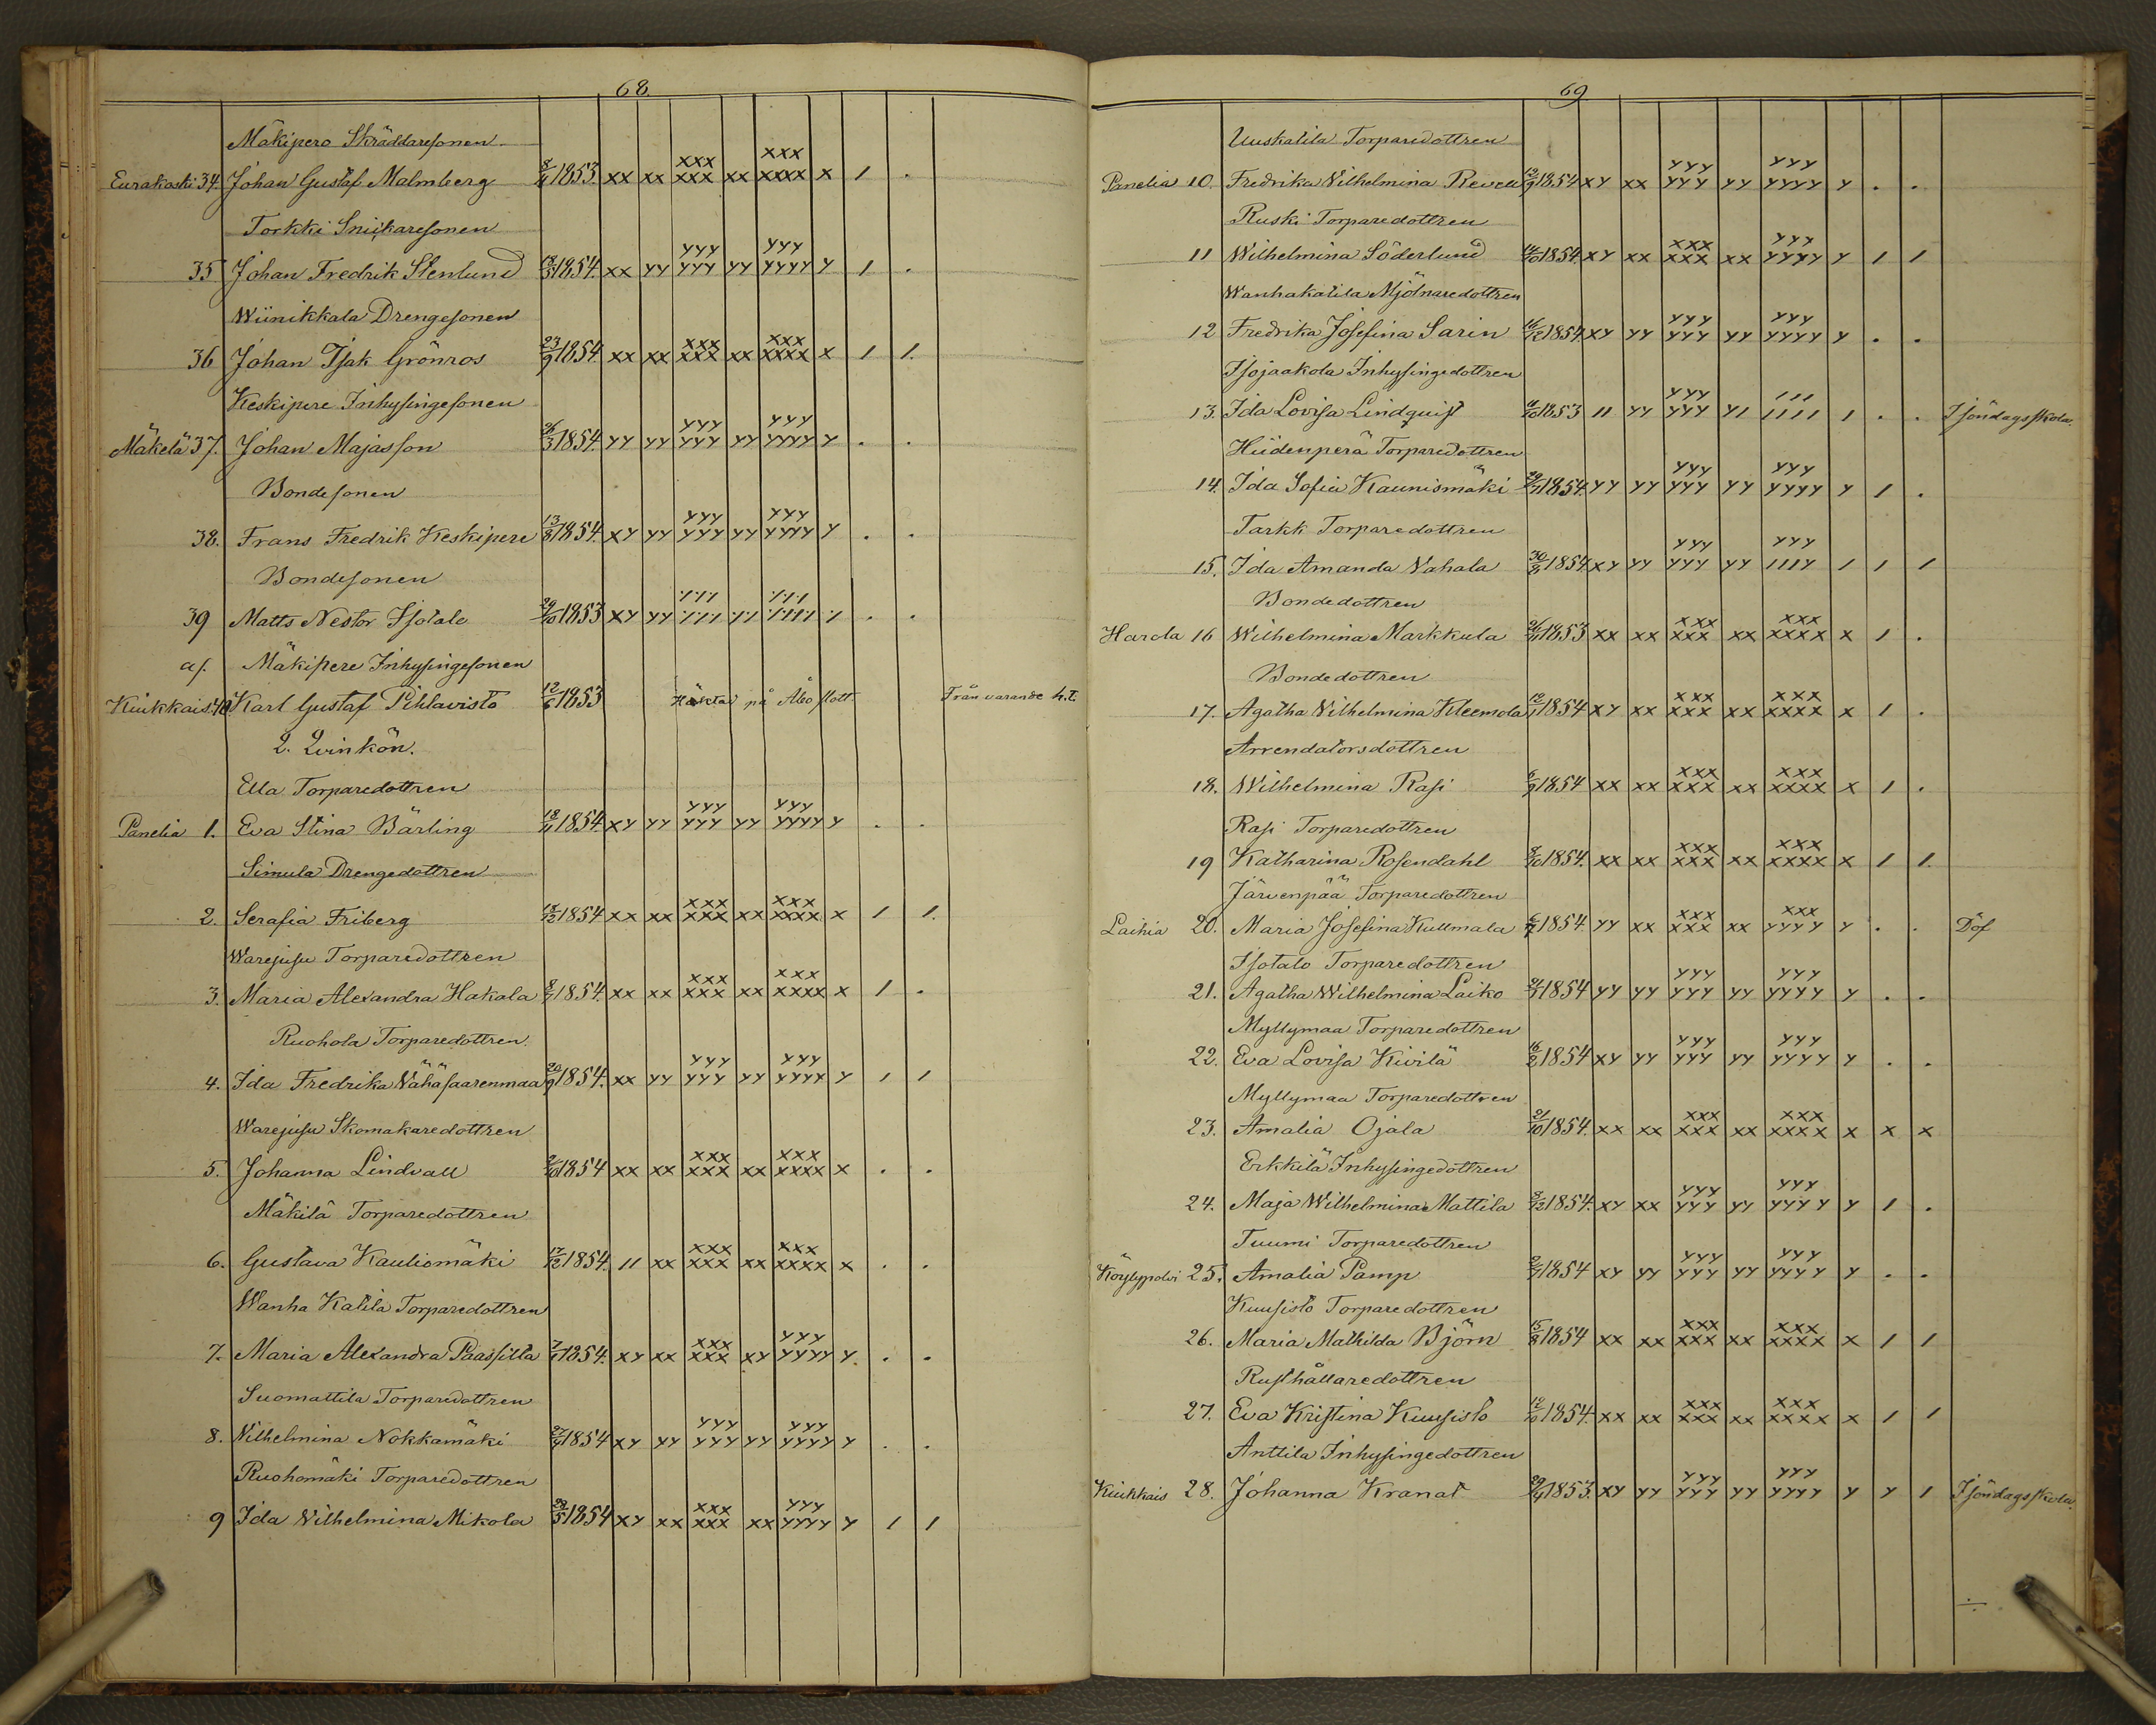 68.
Mäkipere Skräddaresonen
Eurakoski 34. Johan Gustaf Malmberg 1853. xx xx xxx xxx xx xxx xxxx x 1 .
Torkki Snickaresonen
35 Johan Fredrik Stenlund 1854. xx yy yyy yyy yy yyy yyyy y 1 .
Wiinikkala Drengesonen
36 Johan Isak Grönros 23/9 1854. xx xx xxx xxx xx xxx xxxx x 1 1.
Keskipere Inhysingesonen
Mäkelä 37. Johan Majasson 26/3 1854. yy yy yyy yyy yy yyy yyyy y . .
Bondesonen
38. Frans Fredrik Keskipere 13/8 1854. xy yy yyy yyy yy yyy yyyy y . .
Bondesonen
39 Matts Nestor Isotalo 29/10 1853 xy yy . .
af. Mäkipere Inhysingesonen
Kiukkais. 40. Karl Gustaf Pihlavisto 12/6 1853 Häktad på Åbo slott. Från varande h.t.
2. Qvinkön.
Ella Torparedottren
Panelia 1. Eva Stina Bärling 18/11 1854. xy yy yyy yyy yy yyy yyyy y . .
Simula Drengedottren
2. Serafia Friberg 1854 xx xx xxx xxx xx xxx xxxx x 1 1.
Warejusu Torparedottren
3. Maria Alexandra Hakala 8/7 1854. xx xx xxx xxx xx xxx xxxx x 1 .
Ruohola Torparedottren.
4. Ida Fredrika Vähäsaarenmaa 20/9 1854. xx yy yyy yyy yy yyy yyyy y 1 1
Warejusu Skomakaredottren
5. Johanna Lindvall 1854 xx xx xxx xxx xx xxx xxxx x . .
Mäkilä Torparedottren
6. Gustava Kauliomäki 17/12 1854. 11 xx xxx xxx xx xxx xxxx x . .
Wanha Katila Torparedottren
7. Maria Alexandra Paassilta 1854. xy xx xxx xxx xy yyy yyyy y . .
Suomattila Torparedottren
8. Wilhelmina Nokkamäki 1854 xy yy yyy yyy yy yyy yyyy y . .
Ruohomäki Torparedottren
9 Ida Wilhelmina Mikola 28/5 1854 xy xx xxx xxx xx yyy yyyy y 1 1
69
Uuskatila Torparedottren
Panelia 10. Fredrika Wilhelmina Revell 1854 xy xx yyy yyy yy yyy yyyy y . .
Ruski Torparedottren
11 Wilhelmina Söderlund 1854. xy xx xxx xxx xx yyy yyyy y 1 1
Wanhakatila Mjölnaredottren
12 Fredrika Josefina Sarin 16/12 1854. xy yy yyy yyy yy yyy yyyy y . .
Isojaakola Inhysingedottren
13. Ida Lovisa Lindquist 1853 11 yy yyy yyy y1 111 1111 1 . . I söndagsskola.
Hiidenperä Torparedottren
14. Ida Sofia Kaunismäki 1854. yy yy yyy yyy yy yyy yyyy y 1 .
Tarkk Torparedottren
15. Ida Amanda Vahala 1854. xy yy yyy yyy yy yyy 111y 1 1 1
Bondedottren
Harola 16 Wilhelmina Markkula 1853 xx xx xxx xxx xx xxx xxxx x 1 .
Bondedottren
17. Agatha Wilhelmina Kleemola 1854 xy xx xxx xxx xx xxx xxxx x 1 .
Arrendatorsdottren
18. Wilhelmina Rasi 6/9 1854 xx xx xxx xxx xx xxx xxxx x 1 .
Rasi Torparedottren
19 Katharina Rosendahl 8/10 1854. xx xx xxx xxx xx xxx xxxx x 1 1.
Järvenpää Torparedottren
Laihia 20. Maria Josefina Kullmala 1854. yy xx xxx xxx xx xxx yyyy y . . Döf
Isotalo Torparedottren
21. Agatha Wilhelmina Laiko 1854 yy yy yyy yyy yy yyy yyyy y . .
Myllymaa Torparedottren
22. Eva Lovisa Kivilä 16/2 1854 xy yy yyy yyy yy yyy yyyy y . .
Myllymaa Torparedottren
23. Amalia Ojala 21/10 1854. xx xx xxx xxx xx xxx xxxx x x x
Erkkilä Inhysingedottren
24. Maja Wilhelmina Mattila 1854. xy xx yyy yyy yy yyy yyyy y 1 .
Tuumi Torparedottren
Köylypolvi 25. Amalia Pamp 1854 xy yy yyy yyy yy yyy yyyy y . .
Kuusisto Torparedottren
26. Maria Mathilda Björn 15/8 1854 xx xx xxx xxx xx xxx xxxx x 1 1
Rusthållaredottren
27. Eva Kristina Kuusisto 12/10 1854. xx xx xxx xxx xx xxx xxxx x 1 1
Anttila Inhysingedottren
Kiukkais 28. Johanna Kranat 1853. xy yy yyy yyy yy yyy yyyy y y 1 I söndagsskola.